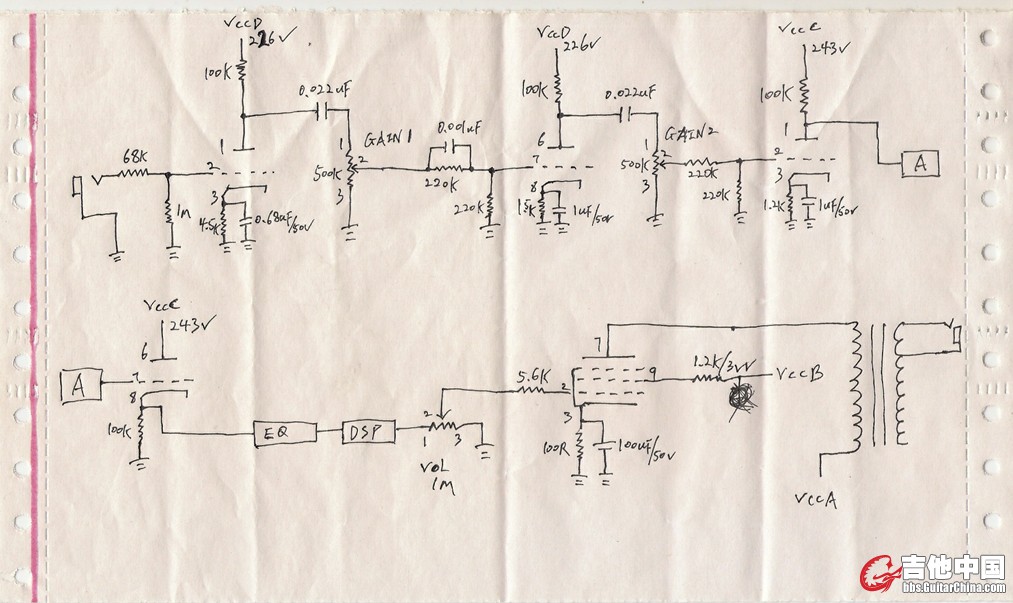 VccD
226V
100K
0.022uF
1
68K
2
3
1M
4.5K
0.68uF/50V
GAIN 1
1
2
500K
3
0.001uF
220K
220K
VccD
226V
100K
0.022uF
6
7
8
1.5K
1uF/50V
GAIN 2
1
2
500K
3
220K
220K
VccC
243V
100K
1
2
3
1.2K
1uF/50V
A
VccC
243V
6
A
7
8
100K
EQ
DSP
2
1
3
VOL
1M
5.6K
7
2
9
3
100R
100uF/50V
1.2K/3W
VccB
VccA
吉他中国
bbs.GuitarChina.com